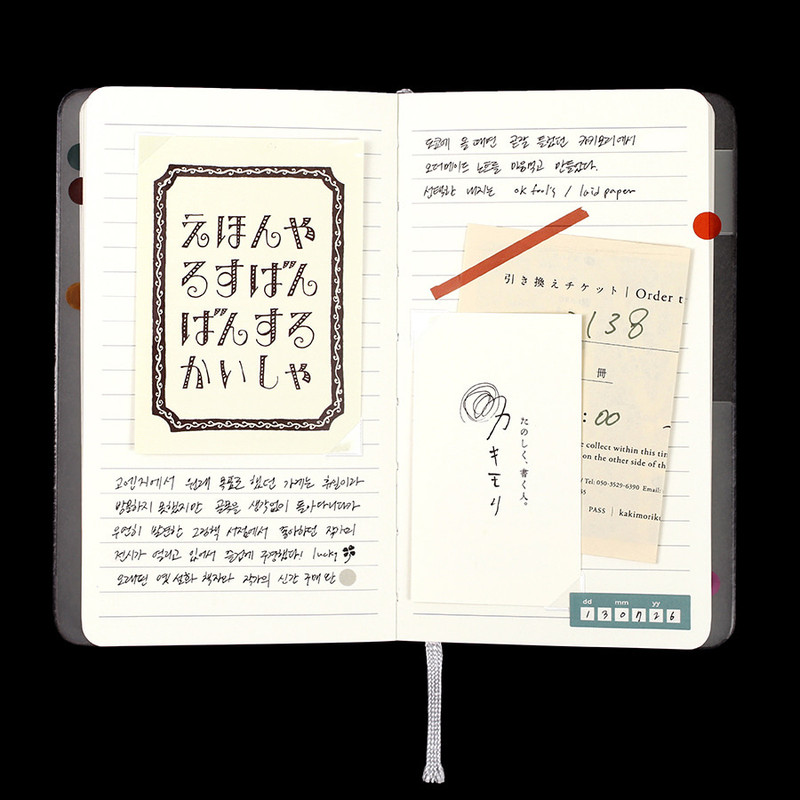 えほんや
るすばん
ばんする
かいしゃ
고엔지에서 원래 목표로 했던 가게는 휴일이라
방문하지 못했지만 골목을 생각없이 돌아다니다가
우연히 발견한 그림책 서점에서 좋아하던 작가의
전시가 열리고 있어서 즐겁게 구경했다! lucky
오래된 옛 설화 책자와 작가의 신간 구매 완
도쿄에 올 때면 곧잘 들렀던 카키모리에서
오더메이드 노트를 마음먹고 만들었다.
선택한 내지는 ok fool's / laid paper
引き換えチケット | Order t
138
冊
:00
e collect within this tim
on the other side of th
Tel: 050-3529-6390 Email:
PASS | kakimoriku
カキモリ
たのしく、書く人。
dd mm yy
1 3 0 7 2 6